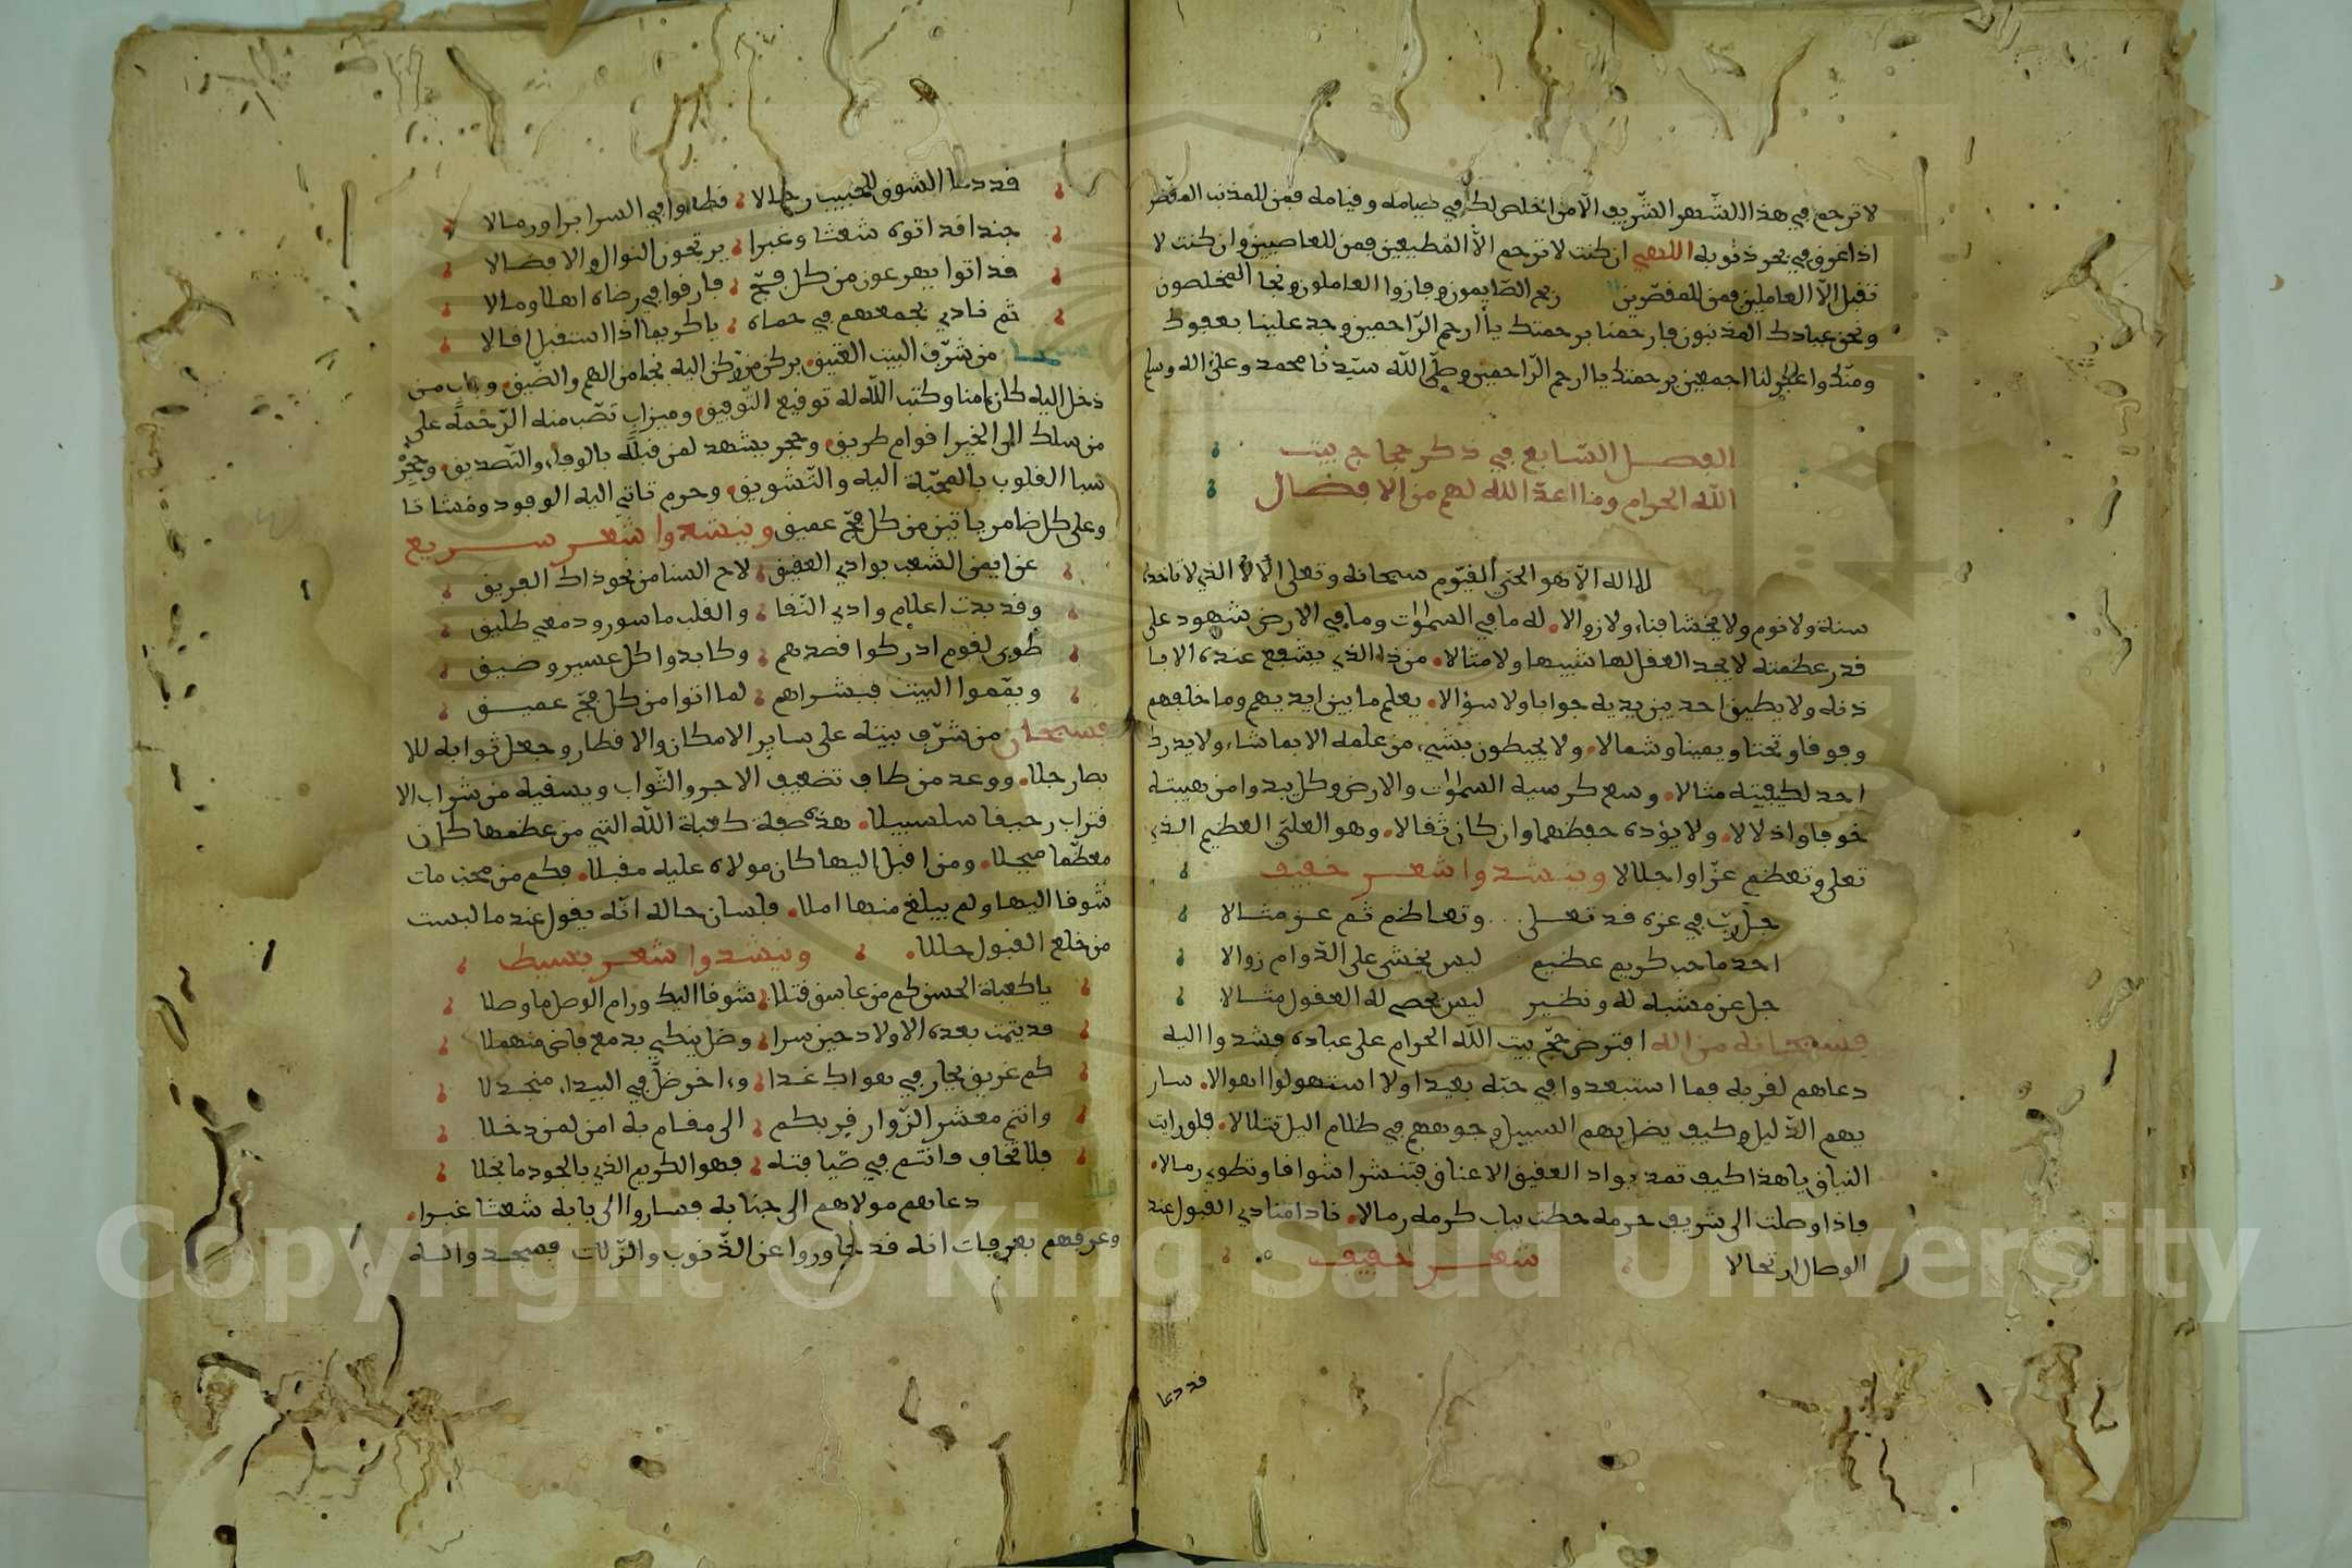 لا ترحم في هذا الشهر الشريف الّا من اخلص لك في صيامه وقيامه فمن للمذنب المقصر
اذا غرق في بحر ذنوبه اللهي ان كنت لا ترحم الّا المطيعين فمن للعاصين وان كنت لا
تقبل الّا العاملين فمن للمقصّرين ربح الصّايمون وفازوا العاملون ونجا المخلصون
ونحن عبادك المذنبون فارحمنا برحمتك يا أرحم الرّاحمين وجد علينا بعفوك
ومنّك واغفر لنا اجمعين برحمتك يا ارحم الرّاحمين وصلّى اللّه سيّدنا محمد وعلى اله وسلم
الفصل السّابع في ذكر حجاج بيت
اللّه الحرام وما اعدّ اللّه لهم من الافضال
لا اله الّا هو الحيّ القيّوم سبحانه وتعلى الذي لا تاخذه
سنة ولا نوم ولا يخشا فناء ولا زوالا. له ما في السموات وما في الارض شهود على
قدر عظمته لا يجد العقل لها شبيها ولا مثالا. من ذا الذي يشفع عنده الا با
ذنه ولا يطيق احد بين يديه جوابا ولا سؤالا. يعلم ما بين ايديهم وما خلفهم
وفوقا وتحتا ويمينا وشمالا. ولا يحيطون بشيء من علمه الا بما شاء ولا يدرك
احد لكيفيته مثالا. وسع كرسيه السموات والارض وكل يبدوا من هيبته
خوفا واذلالا. ولا يؤده حفظهما وان كان ثقالا. وهو العليّ العظيم الذي
تعلى وتعظم عزّا واجلالا وينشدوا شعر خفيف
جلّ ربّ في عزه قد تعلى وتعاظم ثم عز مثالا
احد ماجد كريم عظيم ليس يخشى على الدّوام زوالا
جل عن مشبه له ونظير ليس يحصى له العقول مثالا
فسبحانه من اله افترض حجّ بيت اللّه الحرام على عباده فشدوا اليه
دعاهم لقربه فما استبعدوا في حبّه بعيدا ولا استهولوا اهوالا. سار
بهم الدّليل وكيف يضل بهم السبيل وجوههم في ظلام اليل تتلالا. فلو رايت
النياق يا هذا كيف تمد بواد العقيق الاعناق فتنشر اشواقا وتطوي رمالا.
فاذا وصلت الى شريف حرمه حطت بباب كرمه رمالا. نادا منادي القبول عند
الوصال ارتحالا شعر خفيف
قد دعا
قد دعا الشوق للحبيب رجالا فطووا في السرا برا ورمالا
جندا قد اتوه شعثا وغبرا يرتجون النوال والافضالا
قد اتوا يهرعون من كل فجّ فارقوا في رضاه اهلا ومالا
ثم نادي بجمعهم في حماه يا كريما اذا استقيل اقالا
من شرّف البيت العتيق بركن من ركن اليه نجا من الهم والضّيق وباب من
دخل اليه كان امنا وكتب اللّه له توقيع التّوفيق وميزاب تصّب منه الرّحمة على
من سلك الى الخير اقوام طريق وحجر يشهد لمن قبّله بالوفاء والتّصديق وحجر
سبا القلوب بالمحبّة اليه والتّشويق وحرم تاتي اليه الوفود ومشاتا
وعلى كل ضامر ياتين من كل فجّ عميق وينشدوا شعر سريع
عن ايمن الشعب بوادي العقيق لاح السنا من نحو ذاك الفريق
وقد بدت اعلام وادي النّقا والقلب ماسور ودمعي طليق
طوبى لقوم ادركوا قصدهم وكابدوا كل عسير وضيق
ويمّموا البيت فبشراهم لما اتوا من كل فجّ عميق
فسبحان من شرّف بيته على ساير الامكان والاقطار وجعل ثوابه للا
بصار جلا. ووعد من طاف تضعيف الاجر والثّواب ويسقيه من شراب الا
قتراب رحيقا سلسبيلا. هذه صفة كعبة اللّه التي من عظمها كان
معظّما مبجلا. ومن اقبل اليها كان مولاه عليه مقبلا. فكم من محب مات
شوقا اليها ولم يبلغ منها املا. فلسان حاله انّه يقول عند ما لبست
من خلع القبول حللا. وينشدوا شعر بسيط
يا كعبة الحسن كم من عاشق قتلا شوقا اليك ورام الوصل ما وصلا
قد يتمت بعده الاولاد حين سرا وضل يبكي بدمع فاض منهملا
كم غريق بحار في هواك غدا واخر ضلّ في البيداء منجدلا
وانتم معشر الزّوار قربكم الى مقام به امن لمن دخلا
فلا تخاف وانتم في ضيافته فهو الكريم الذي بالجود ما بخلا
دعاهم مولاهم الى جنابه فساروا الى بابه شعثا غبرا.
وعرفهم بعرفات انه قد تجاوروا عن الذّنوب والزّلات فسجدوا له